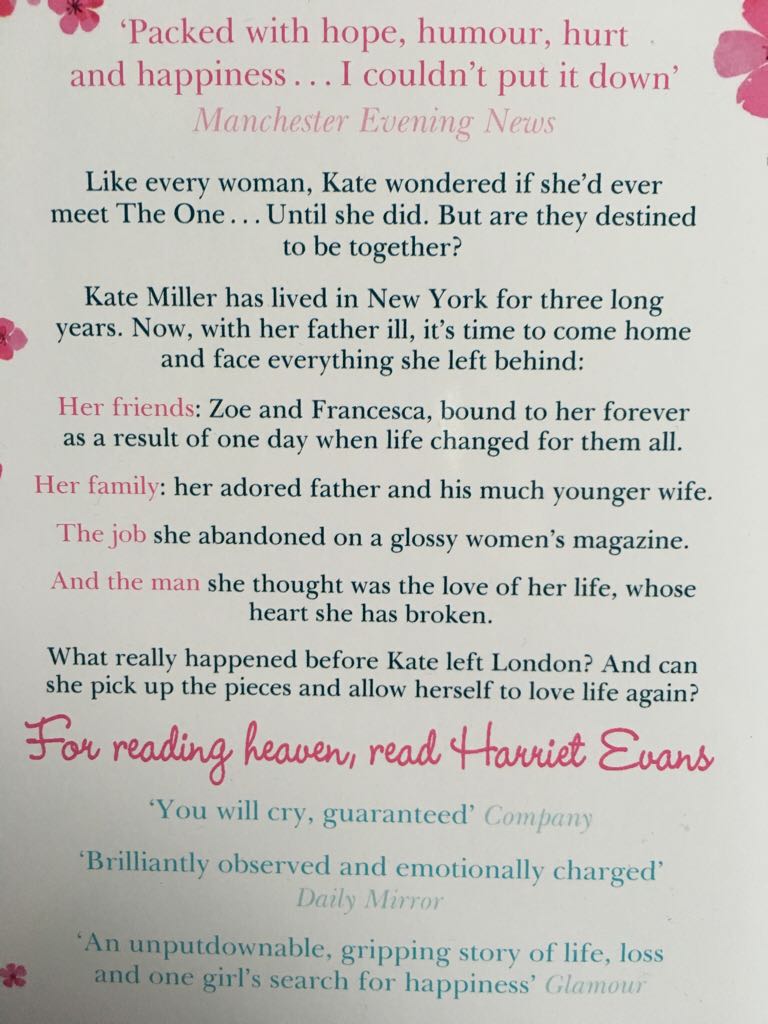 ‘Packed with hope, humour, hurt
and happiness... I couldn’t put it down’
Manchester Evening News
Like every woman, Kate wondered if she’d ever
meet The One... Until she did. But are they destined
to be together?
Kate Miller has lived in New York for three long
years. Now, with her father ill, it’s time to come home
and face everything she left behind:
Her friends: Zoe and Francesca, bound to her forever
as a result of one day when life changed for them all.
Her family: her adored father and his much younger wife.
The job she abandoned on a glossy women’s magazine.
And the man she thought was the love of her life, whose
heart she has broken.
What really happened before Kate left London? And can
she pick up the pieces and allow herself to love life again?
For reading heaven, read Harriet Evans
‘You will cry, guaranteed’ Company
‘Brilliantly observed and emotionally charged’
Daily Mirror
‘An unputdownable, gripping story of life, loss
and one girl’s search for happiness’ Glamour